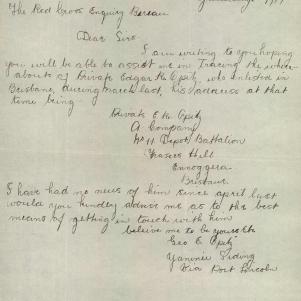 The Red Cross Enquiry Bureau
Dear Sirs
I am writing to you hoping
you will be able to assist me in Tracing the where
abouts of Private Edgar H Opitz, who enlisted in
Brisbane, during march last, his address at that
time being
Private E H Opitz
A Company
No 11 Depot Battalion
Frasers Hill
Enoggera
Brisbane
I have had no news of him since april last
would you kindley advise me as to the best
means of getting in touch with him
beleive me to be yours etc
Geo E Opitz
Yaninee Siding
Via Port Lincoln